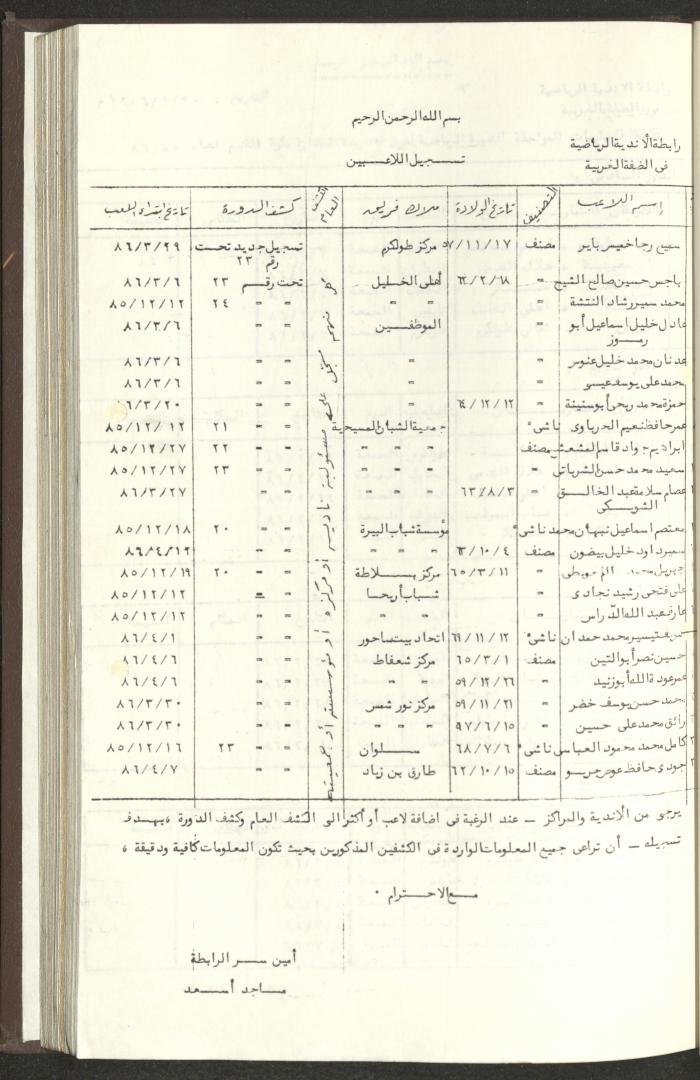 بسم الله الرحمن الرحيم
رابطة الأندية الرياضية
في الضفة الغربية
تسجيل اللاعبين
إسم اللاعب التصنيف تاريخ الولادة ملاك فريق الكشف العام كشف الدورة تاريخ ابتداء اللعب
سميح رجا خميس باير مصنف ٥٧/١١/١٧ مركز طولكرم تسجيل جديد تحت ٨٦/٣/٢٩
رقم ٢٣
باجس حسين صالح الشيخ " ٦٢/٢/١٨ أهلي الخليل تحت رقم ٢٣ ٨٦/٣/٦
محمد سمير رشاد النتشة " " " " " ٢٤ ٨٥/١٢/١٢
عادل خليل اسماعيل أبو " الموظفين " " ٨٦/٣/٦
رموز
عدنان محمد خليل عنوس " " " " ٨٦/٣/٦
محمد علي يوسف عيسى " " " " ٨٦/٣/٦
حمزة محمد ربحي أبو سنينة " ٦٤/١٢/١٢ " " " ٨٦/٣/٢٠
عمر حافظ نعيم الحرباوي ناشئ جمعية الشبان المسيحية " " ٢١ ٨٥/١٢/١٢
ابراهيم جواد قاسم المشعشع مصنف " " " " " ٢٢ ٨٥/١٢/٢٧
سعيد محمد حسن الشرباتي " " " " " " ٢٣ ٨٥/١٢/٢٧
عصام سلامة عبد الخالق " ٦٣/٨/٣ " " " " ٨٦/٣/٢٧
الشويكي
معتصم اسماعيل نبهان محمد ناشئ مؤسسة شباب البيرة " " ٢٠ ٨٥/١٢/١٨
سمير داود خليل بيضون مصنف ٦٣/١٠/٤ " " " " " ٨٦/٤/١٢
جبريل محمد " ٦٥/٣/١١ مركز بلاطة " " ٢٠ ٨٥/١٢/١٩
علي فتحي رشيد نجادي " شباب أريحا " " ٨٥/١٢/١٢
عارف عبد الله الدراس " " " " " ٨٥/١٢/١٢
تيسير محمد حمدان ناشئ ٦٩/١١/١٢ اتحاد بيت ساحور " " ٨٦/٤/١
حسين نصر أبو التين مصنف ٦٥/٣/١ مركز شعفاط " " ٨٦/٤/٦
عمر عودة الله أبو زنيد " ٥٩/١٢/٢٦ " " " " ٨٦/٤/٦
محمد حسن يوسف خضر " ٥٩/١١/٢١ مركز نور شمس " " ٨٦/٣/٣٠
رائق محمد علي حسين " ٩٧/٦/١٥ " " " " " ٨٦/٣/٣٠
كامل محمد محمود العباسي ناشئ ٦٨/٧/٦ سلوان " " ٢٣ ٨٥/١٢/١٦
جودي حافظ عوض جريو مصنف ٦٢/١٠/١٥ طارق بن زياد " " ٨٦/٤/٧
كل منهم مسجل على مسئولية ناديه أو مركزه أو مؤسسته أو جمعيته
يرجى من الأندية والمراكز – عند الرغبة في اضافة لاعب أو أكثر الى الكشف العام وكشف الدورة ، بهدف
تسجيله – أن تراعى جميع المعلومات الواردة في الكشفين المذكورين بحيث تكون المعلومات كافية ودقيقة ،
مع الاحترام .
أمين سر الرابطة
ماجد أسعد